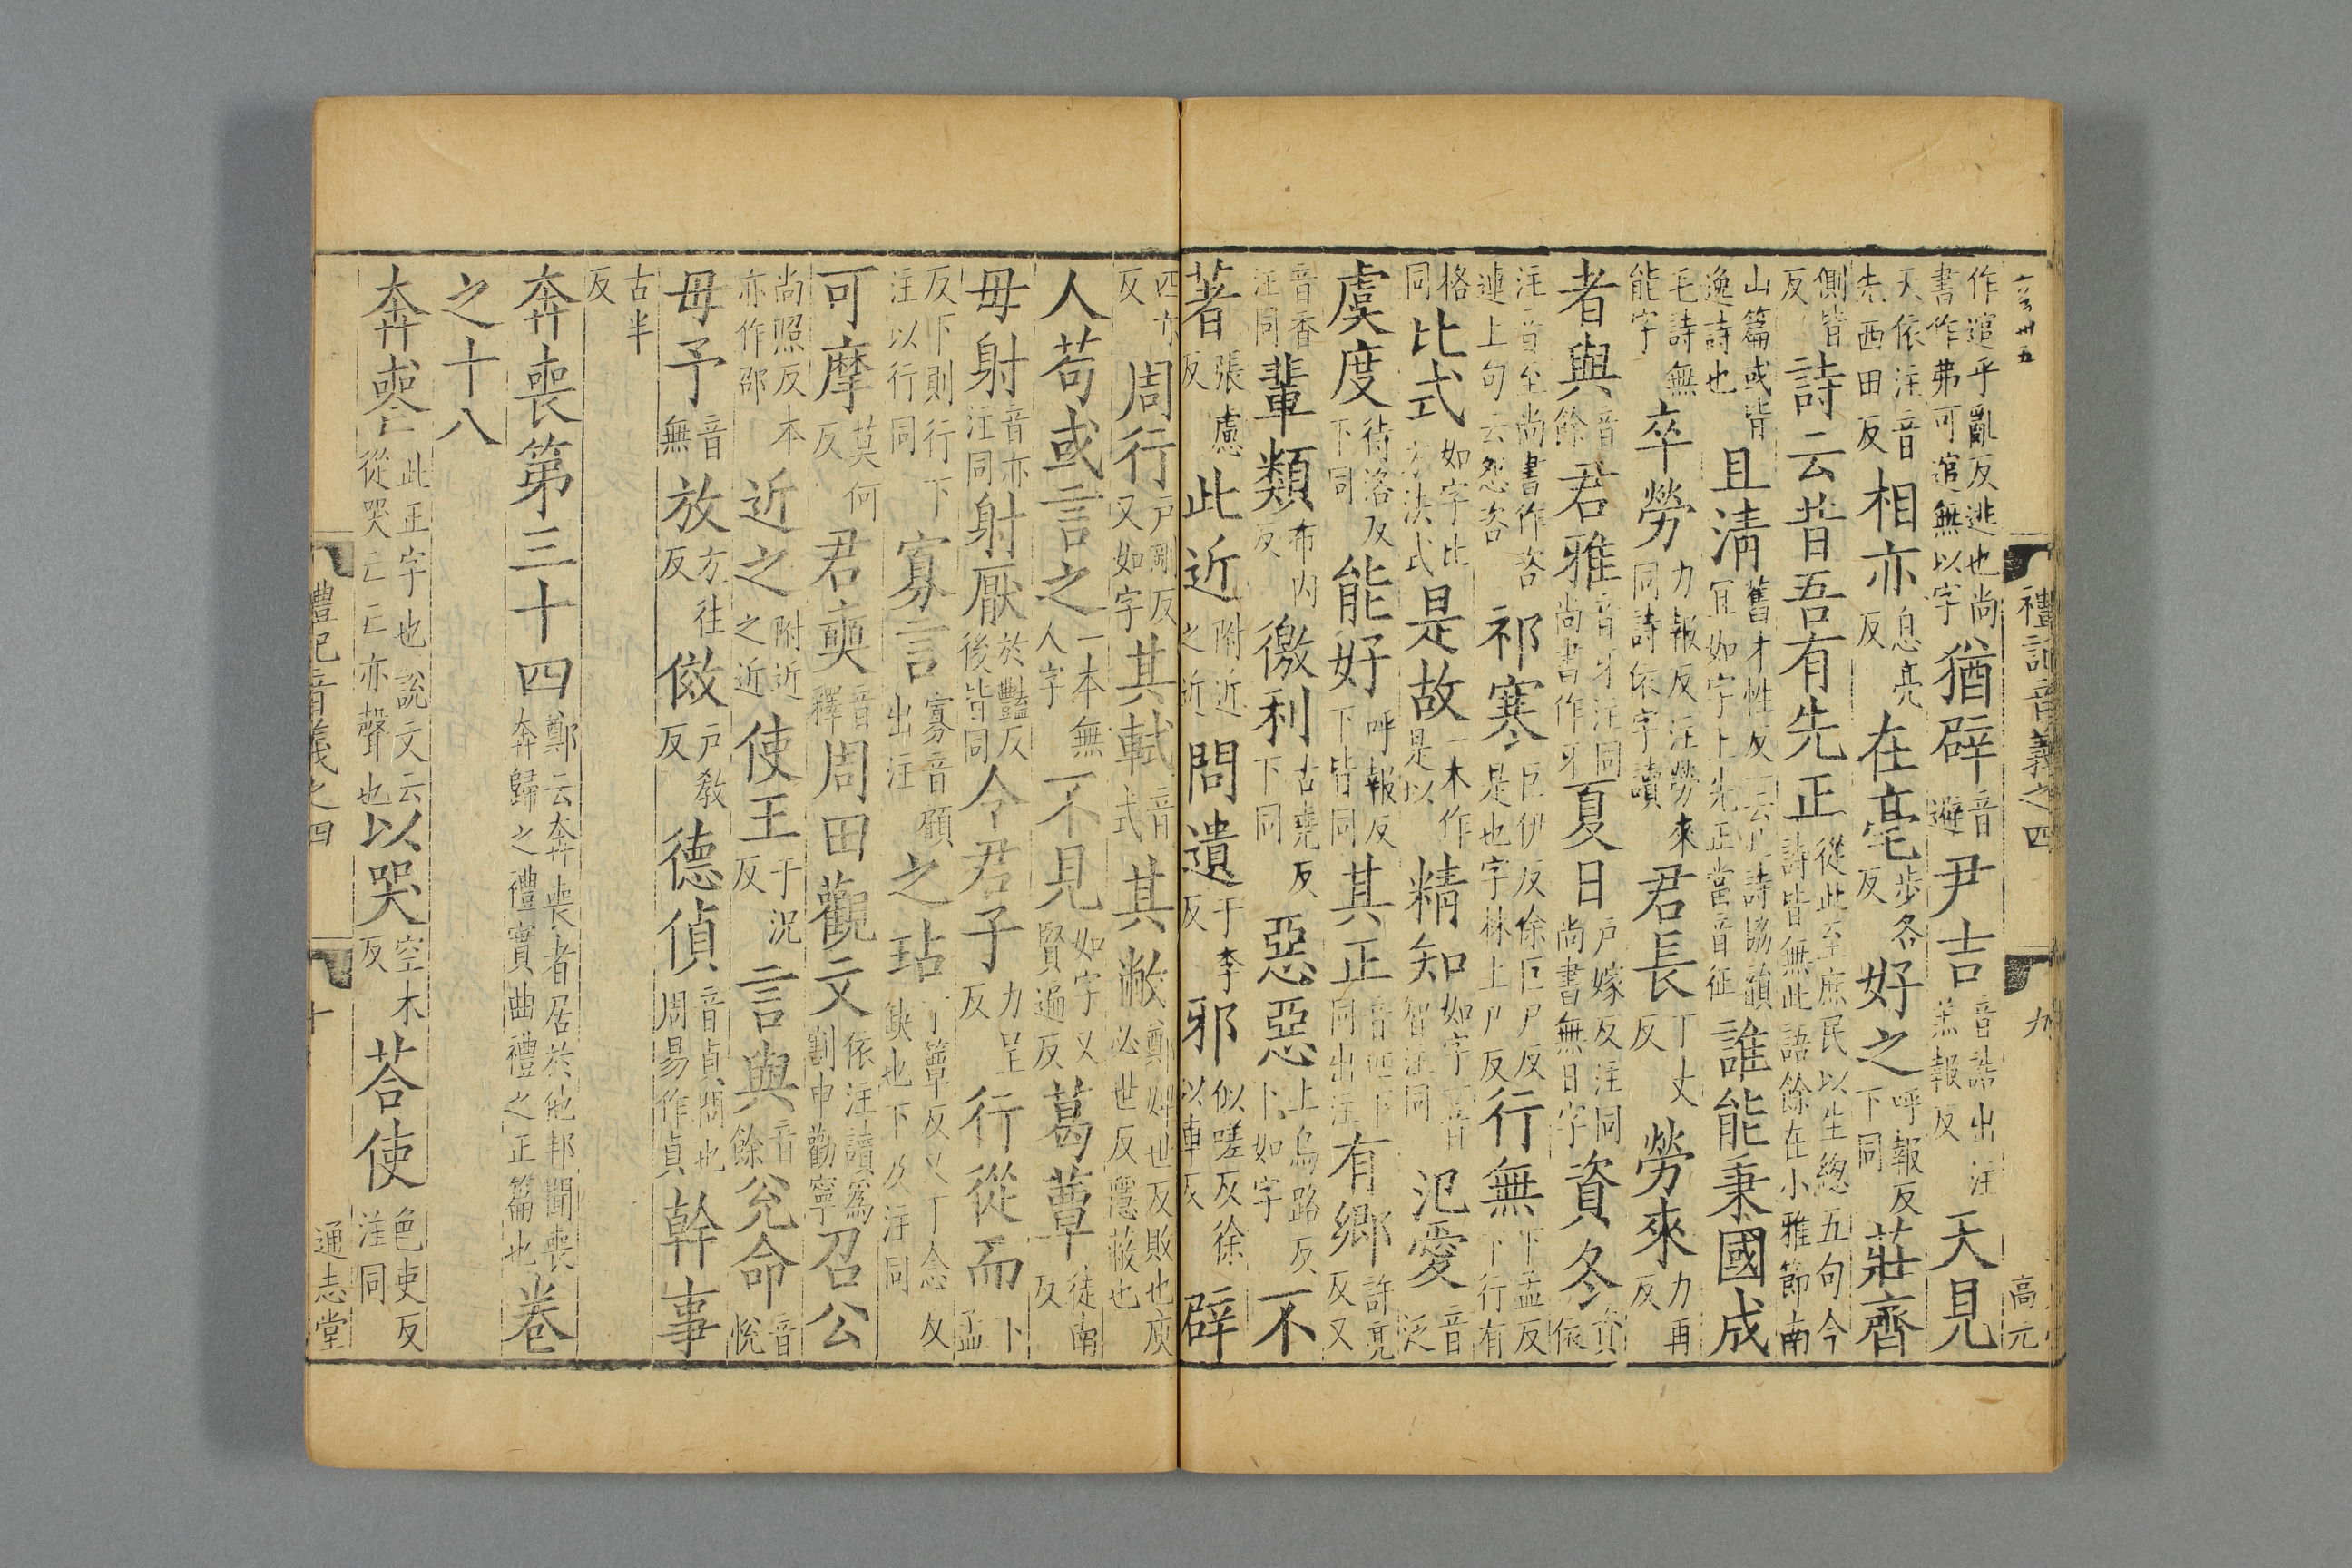 禮記音義之四 九 高元
作逭乎亂反逃也尚書作弗可逭無以字猶辟音避尹吉音誥出注羔報反天見
天依注音先西田反相亦息亮反在亳步各反好之呼報反下同莊齊
側皆反詩云昔吾有先正從此至庶民以生總五句今詩皆無此語餘在小雅節南
山篇或皆逸詩也且清舊才性反宜如字上先正當音征誰能秉國成
毛詩無能字卒勞力報反注勞來同詩依字讀君長丁丈反勞來力再反
者與音餘君雅音牙注同尚書作牙夏日戶嫁反注同尚書無日字資冬依
注音至尚書作咨連上句云怨咨祁寒巨伊反徐巨尸反是也字林上尸反行無下孟反下行有
格同比式如字比大法式是故一本作是以精知如字音智注同氾愛音泛
虞度待洛反下同能好呼報反下皆同其正音匹下同出注有鄉許亮反又
音香注同輩類布內反徼利古堯反下同惡惡上烏路反下如字不
著張慮反此近附近之近問遺于季反邪似嗟反徐以車反辟
四亦反周行戶剛反又如字其軾音式其敝鄭婢世反敗也庾必世反隱蔽也
人苟或言之一本無人字不見如字又賢遍反葛蕈徒南反
毋射音亦注同射厭於豔反後皆同令君子力呈反行從而下孟
反下則行下注以行同寡言寡音顧出注之玷丁簟反又丁念反缺也下及注同
可摩莫何反君奭音釋周田觀文依注讀爲割申勸寧召公
尚照反本亦作邵近之附近之近使王于況反言與音餘兌命音悅
毋予音無放方往反傚戶教反德偵音貞問也周易作貞幹事
古半反
奔喪第三十四鄭云奔喪者居於他邦聞喪奔歸之禮實曲禮之正篇也卷
之十八
奔喪此正字也說文云從哭亡亡亦聲也以哭空木反荅使色吏反注同
禮記音義之四 十 通志堂